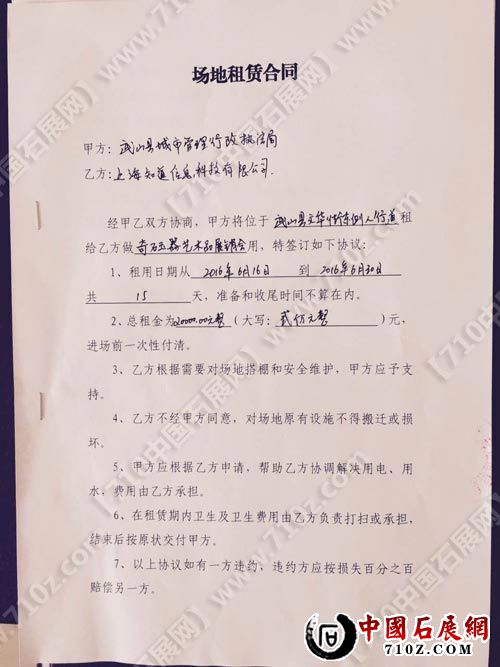 场地租赁合同
甲方：武山县城市管理行政执法局
乙方：上海知道信息科技有限公司.
经甲乙双方协商，甲方将位于 武山县文华街东侧人行道 租
给乙方做 奇石玉器艺术品展销会 用，特签订如下协议：
1、租用日期从 2016年6月16日 到 2016年6月30日
共 15 天，准备和收尾时间不算在内。
2、总租金为 20000.00元整 （大写：贰万元整 ）元，
进场前一次性付清。
3、乙方根据需要对场地搭棚和安全维护，甲方应予支
持。
4、乙方不经甲方同意，对场地原有设施不得搬迁或损
坏。
5、甲方应根据乙方申请，帮助乙方协调解决用电、用
水，费用由乙方承担。
6、在租赁期内卫生及卫生费用由乙方负责打扫或承担，
结束后按原状交付甲方。
7、以上协议如有一方违约，违约方应按损失百分之百
赔偿另一方。
【710中国石展网】www.710z.com
中國石展網
710Z.COM